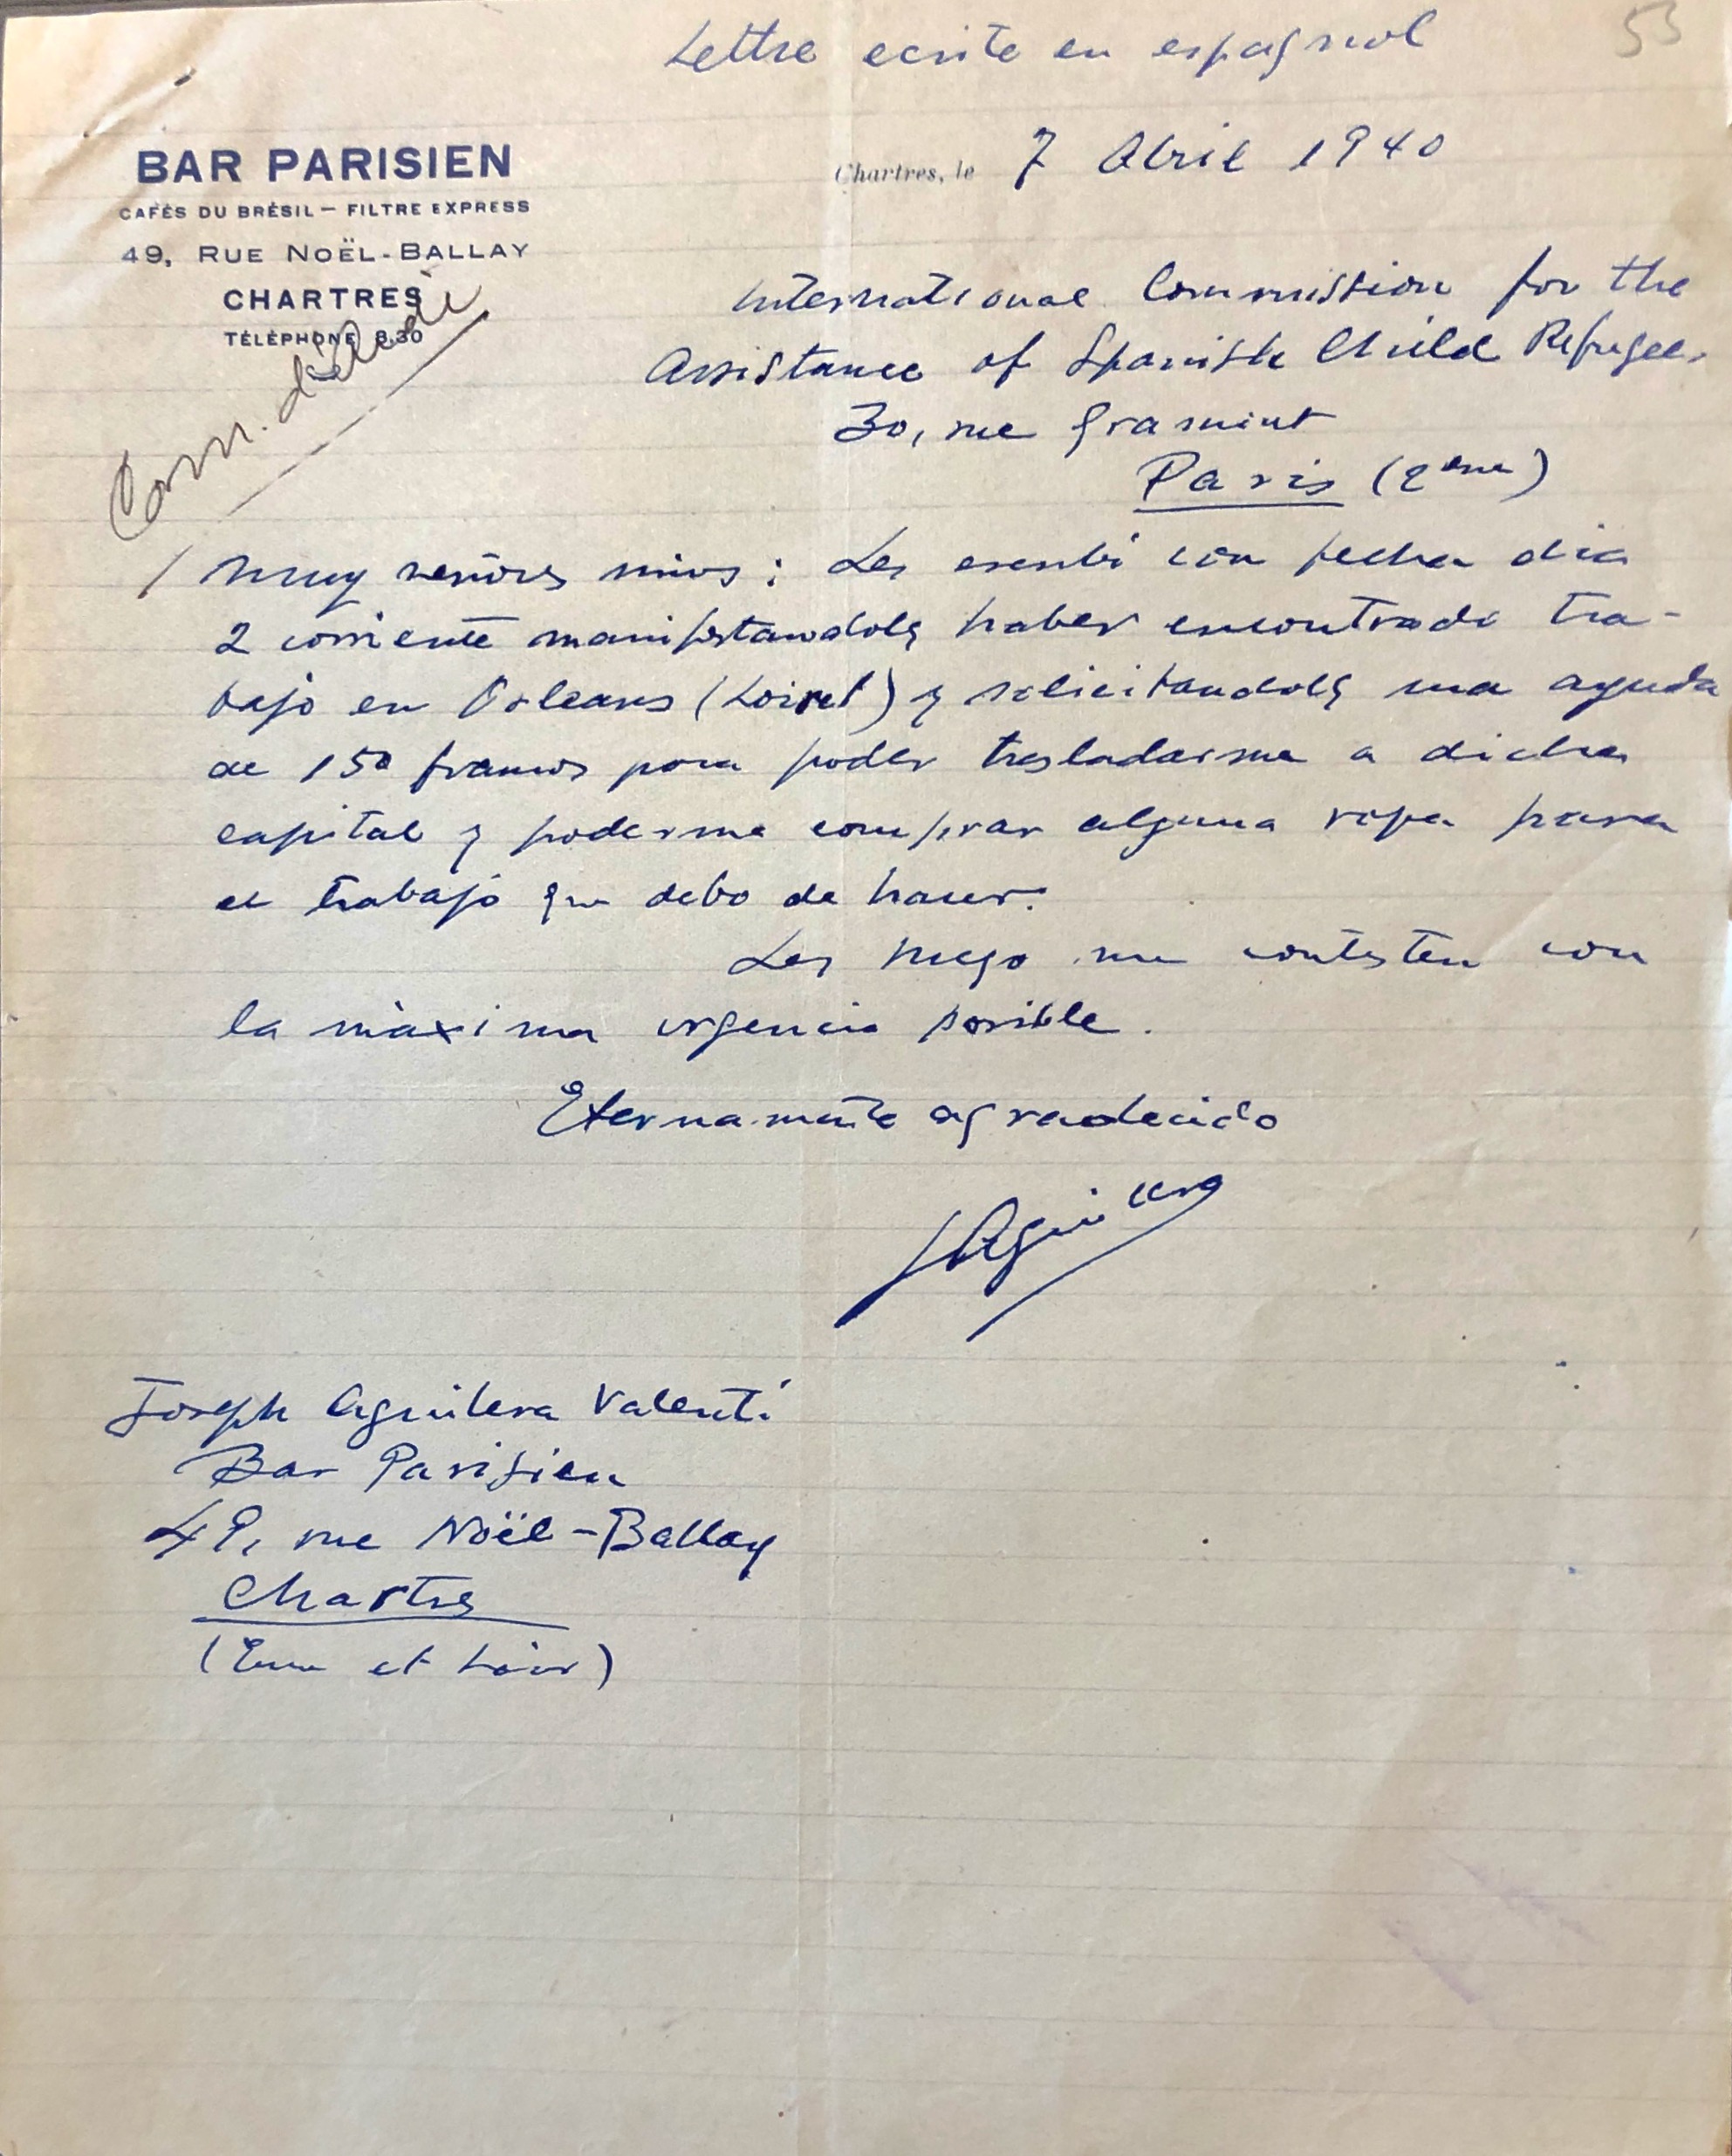 Lettre ecrite en espagnol 53
BAR PARISIEN
CAFÉS DU BRÉSIL — FILTRE EXPRESS
49, RUE NOËL-BALLAY
CHARTRES
TÉLÉPHONE 8.30
Chartres, le 7 Abril 1940
International Commission for the
Assistance of Spanish Child Refugees
30, rue Gramint
Paris (2eme)
Muy señores mios: Les escribí con fecha dia
2 corriente manifestandoles haber encontrado tra-
bajo en Orleans (Loiret) y solicitandoles una ayuda
de 150 francos para poder trasladarme a dicha
capital y poderme comprar alguna ropa para
el trabajo que debo de hacer.
Les ruego me contesten con
la màxima urgencia posible.
Eternamente agradecido
JAguilera
Joseph Aguilera Valentí
Bar Parisien
49, rue Noël-Ballay
Chartres
(Eure et Loir)